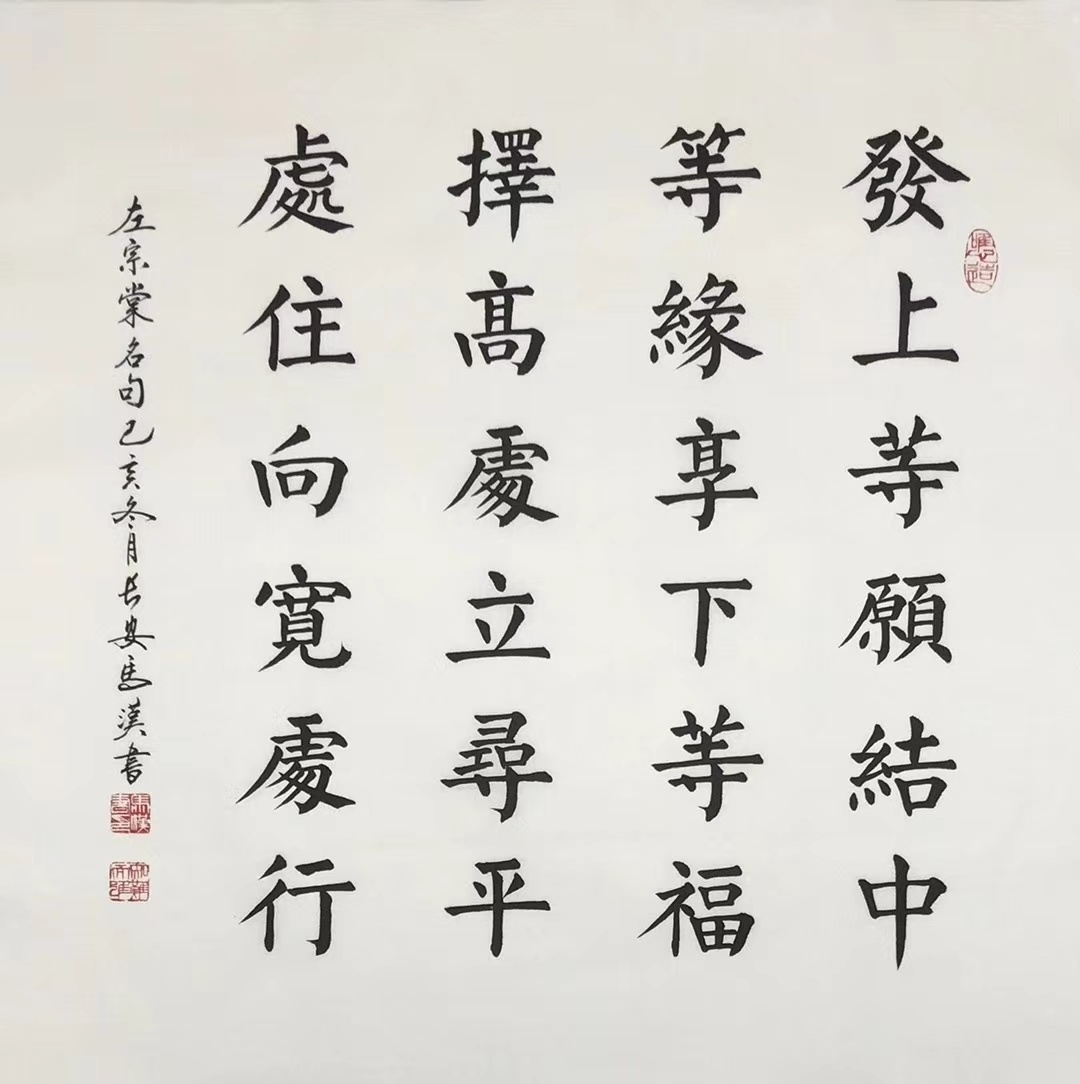 發上等願結中
等緣享下等福
擇高處立尋平
處住向寬處行
左宗棠名句己亥冬月长安馬漢書